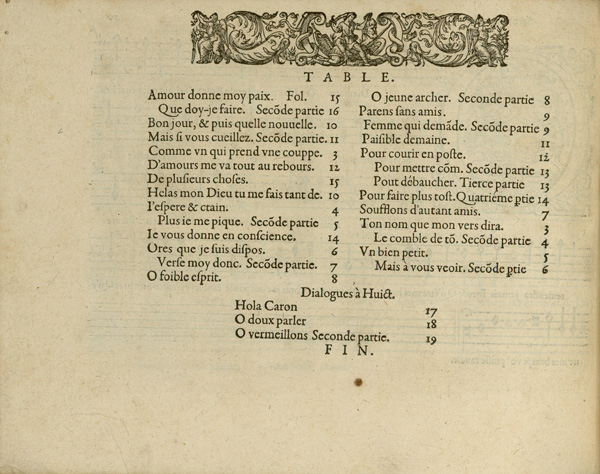 TABLE.
Amour donne moy paix. Fol. 15
Que doy-je faire. Secõde partie 16
Bon jour, & puis quelle nouuelle. 10
Mais si vous cueillez. Secõde partie. 11
Comme vn qui prend vne couppe. 3
D'amours me va tout au rebours. 12
De plusieurs choses. 15
Helas mon Dieu tu me fais tant de. 10
I'espere & ctain. 4
Plus ie me pique. Secõde partie 5
Ie vous donne en conscience. 14
Ores que je suis dispos. 6
Verse moy donc. Secõde partie. 7
O foible esprit. 8
O jeune archer. Seconde partie 8
Parens sans amis. 9
Femme qui demãde. Secõde partie 9
Paisible demaine. 11
Pour courir en poste. 12
Pour mettre cõm. Secõde partie 13
Pout débaucher. Tierce partie 13
Pour faire plus tost. Quatriéme ptie 14
Soufflons d'autant amis. 7
Ton nom que mon vers dira. 3
Le comble de tõ. Secõde partie 4
Vn bien petit. 5
Mais à vous veoir. Secõde ptie 6
Dialogues à Huict.
Hola Caron 17
O doux parler 18
O vermeillons Seconde partie. 19
FIN.